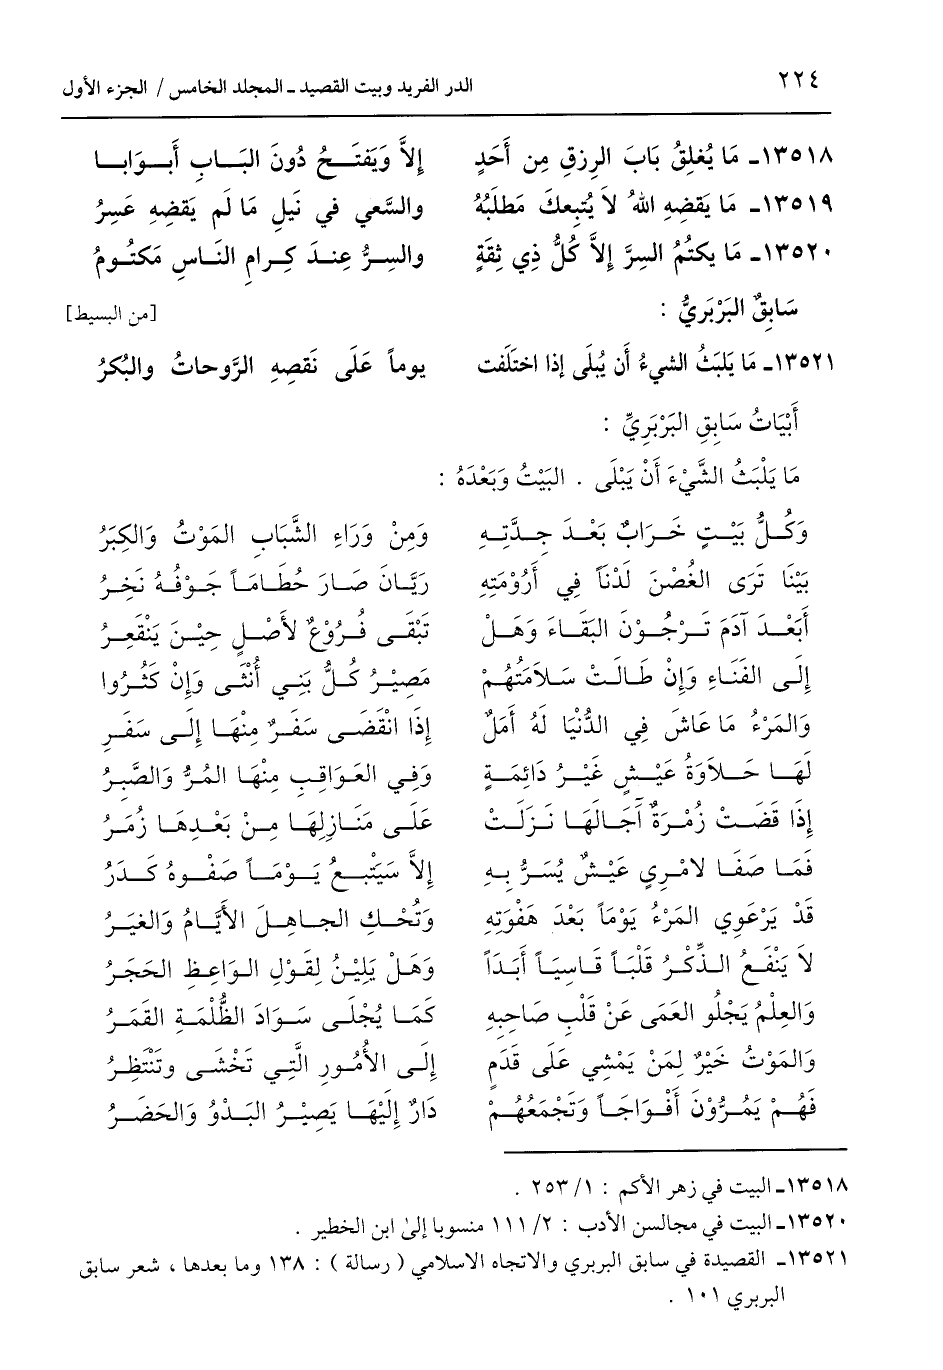 ٢٢٤ الدر الفريد وبيت القصيد ـ المجلد الخامس / الجزء الأول
١٣٥١٨ـ مَا يُغلِقُ بَابَ الرِزقِ مِن أَحَدٍ إِلاَّ وَيَفتَحُ دُونَ البَابِ أَبوَابا
١٣٥١٩ـ مَا يَقضِهِ اللهُ لاَ يُتبِعكَ مَطلَبُهُ والسَّعي في نَيلِ مَا لَم يَقضِهِ عَسِرُ
١٣٥٢٠ـ مَا يكتُمُ السِرَّ إلاَّ كُلُّ ذِي ثِقَةٍ والسِرُّ عِندَ كِرامِ النَّاسِ مَكتُومُ
سَابِقٌ البَرْبَرِيُّ : [من البسيط]
١٣٥٢١ـ مَا يَلبَثُ الشيءُ أَن يُبلَى إِذا اختَلَفَت يوماً عَلَى نَقصِهِ الرَّوحاتُ والبُكرُ
أَبْيَاتُ سَابِقِ البَرْبَرِيِّ :
مَا يَلْبَثُ الشَّيْءَ أَنْ يَبْلَى . البَيْتُ وَبَعْدَهُ :
وَكُلُّ بَيْتٍ خَرَابٌ بَعْدَ جِدَّتِهِ وَمِنْ وَرَاءِ الشَّبَابِ المَوْتُ وَالكِبَرُ
بَيْنَا تَرَى الغُصْنَ لَدْنَاً فِي أَرُوْمَتِهِ رَيَّانَ صَارَ حُطَامَاً جَوْفُهُ نَخِرُ
أَبَعْدَ آدَمَ تَرجُوْنَ البَقَاءَ وَهَلْ تَبْقَى فُرُوْعٌ لأَصْلٍ حِيْنَ يَنْقَعِرُ
إِلَى الفَنَاءِ وَإِنْ طَالَتْ سَلاَمَتُهُمْ مَصِيْرُ كُلُّ بَنِي أُنْثَى وَإِنْ كَثُرُوا
وَالمَرْءُ مَا عَاشَ فِي الدُّنْيَا لَهُ أَمَلٌ إِذَا انْقَضَى سَفَرٌ مِنْهَا إِلَى سَفَرِ
لَهَا حَلاَوَةُ عَيْشٍ غَيْرُ دَائِمَةٍ وَفِي العَوَاقِبِ مِنْهَا المُرُّ وَالصَّبِرُ
إِذَا قَضَتْ زُمْرَةٌ آجَالَهَا نَزَلَتْ عَلَى مَنَازِلِهَا مِنْ بَعْدِهَا زُمَرُ
فَمَا صَفَا لامْرِيٍ عَيْشٌ يُسَرُّ بِهِ إِلاَّ سَيَتْبَعُ يَوْمَاً صَفْوهُ كَدَرُ
قَدْ يَرْعَوِي المَرْءُ يَوْمَاً بَعْدَ هَفْوَتِهِ وَتُحْكِ الجاهِلَ الأَيَّامُ وَالغِيَرُ
لاَ يَنْفَعُ الذِّكْرُ قَلْبَاً قَاسِيَاً أَبَدَاً وَهَلْ يَلِيْنُ لِقَوْلِ الوَاعِظِ الحَجَرُ
وَالعِلْمُ يَجْلُو العَمَى عَنْ قَلْبِ صَاحِبِهِ كَمَا يُجْلَى سَوَادَ الظُّلْمَةِ القَمَرُ
وَالمَوْتُ خَيْرٌ لِمَنْ يَمْشِي عَلَى قَدَمٍ إِلَى الأُمُورِ الَّتِي تَخْشَى وتَنْتَظِرُ
فَهُمْ يَمُرُّوْنَ أَفْوَاجَاً وَتَجْمَعُهُمْ دَارٌ إِلَيْهَا يَصِيْرُ البَدْوُ وَالحَضَرُ
١٣٥١٨ـ البيت في زهر الأكم : ١/ ٢٥٣ .
١٣٥٢٠ـ البيت في مجالسن الأدب : ٢/ ١١١ منسوبا إلىٰ ابن الخطير .
١٣٥٢١ـ القصيدة في سابق البربري والاتجاه الاسلامي ( رسالة ) : ١٣٨ وما بعدها ، شعر سابق
البربري ١٠١ .